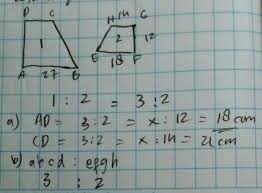 D C H 14 G
1 2 12
A 27 B E 18 F
1 : 2 = 3 : 2
a) AD = 3:2 = x : 12 = 18 cm
CD = 3:2 = x : 14 = 21 cm
b) abcd : efgh
3 : 2